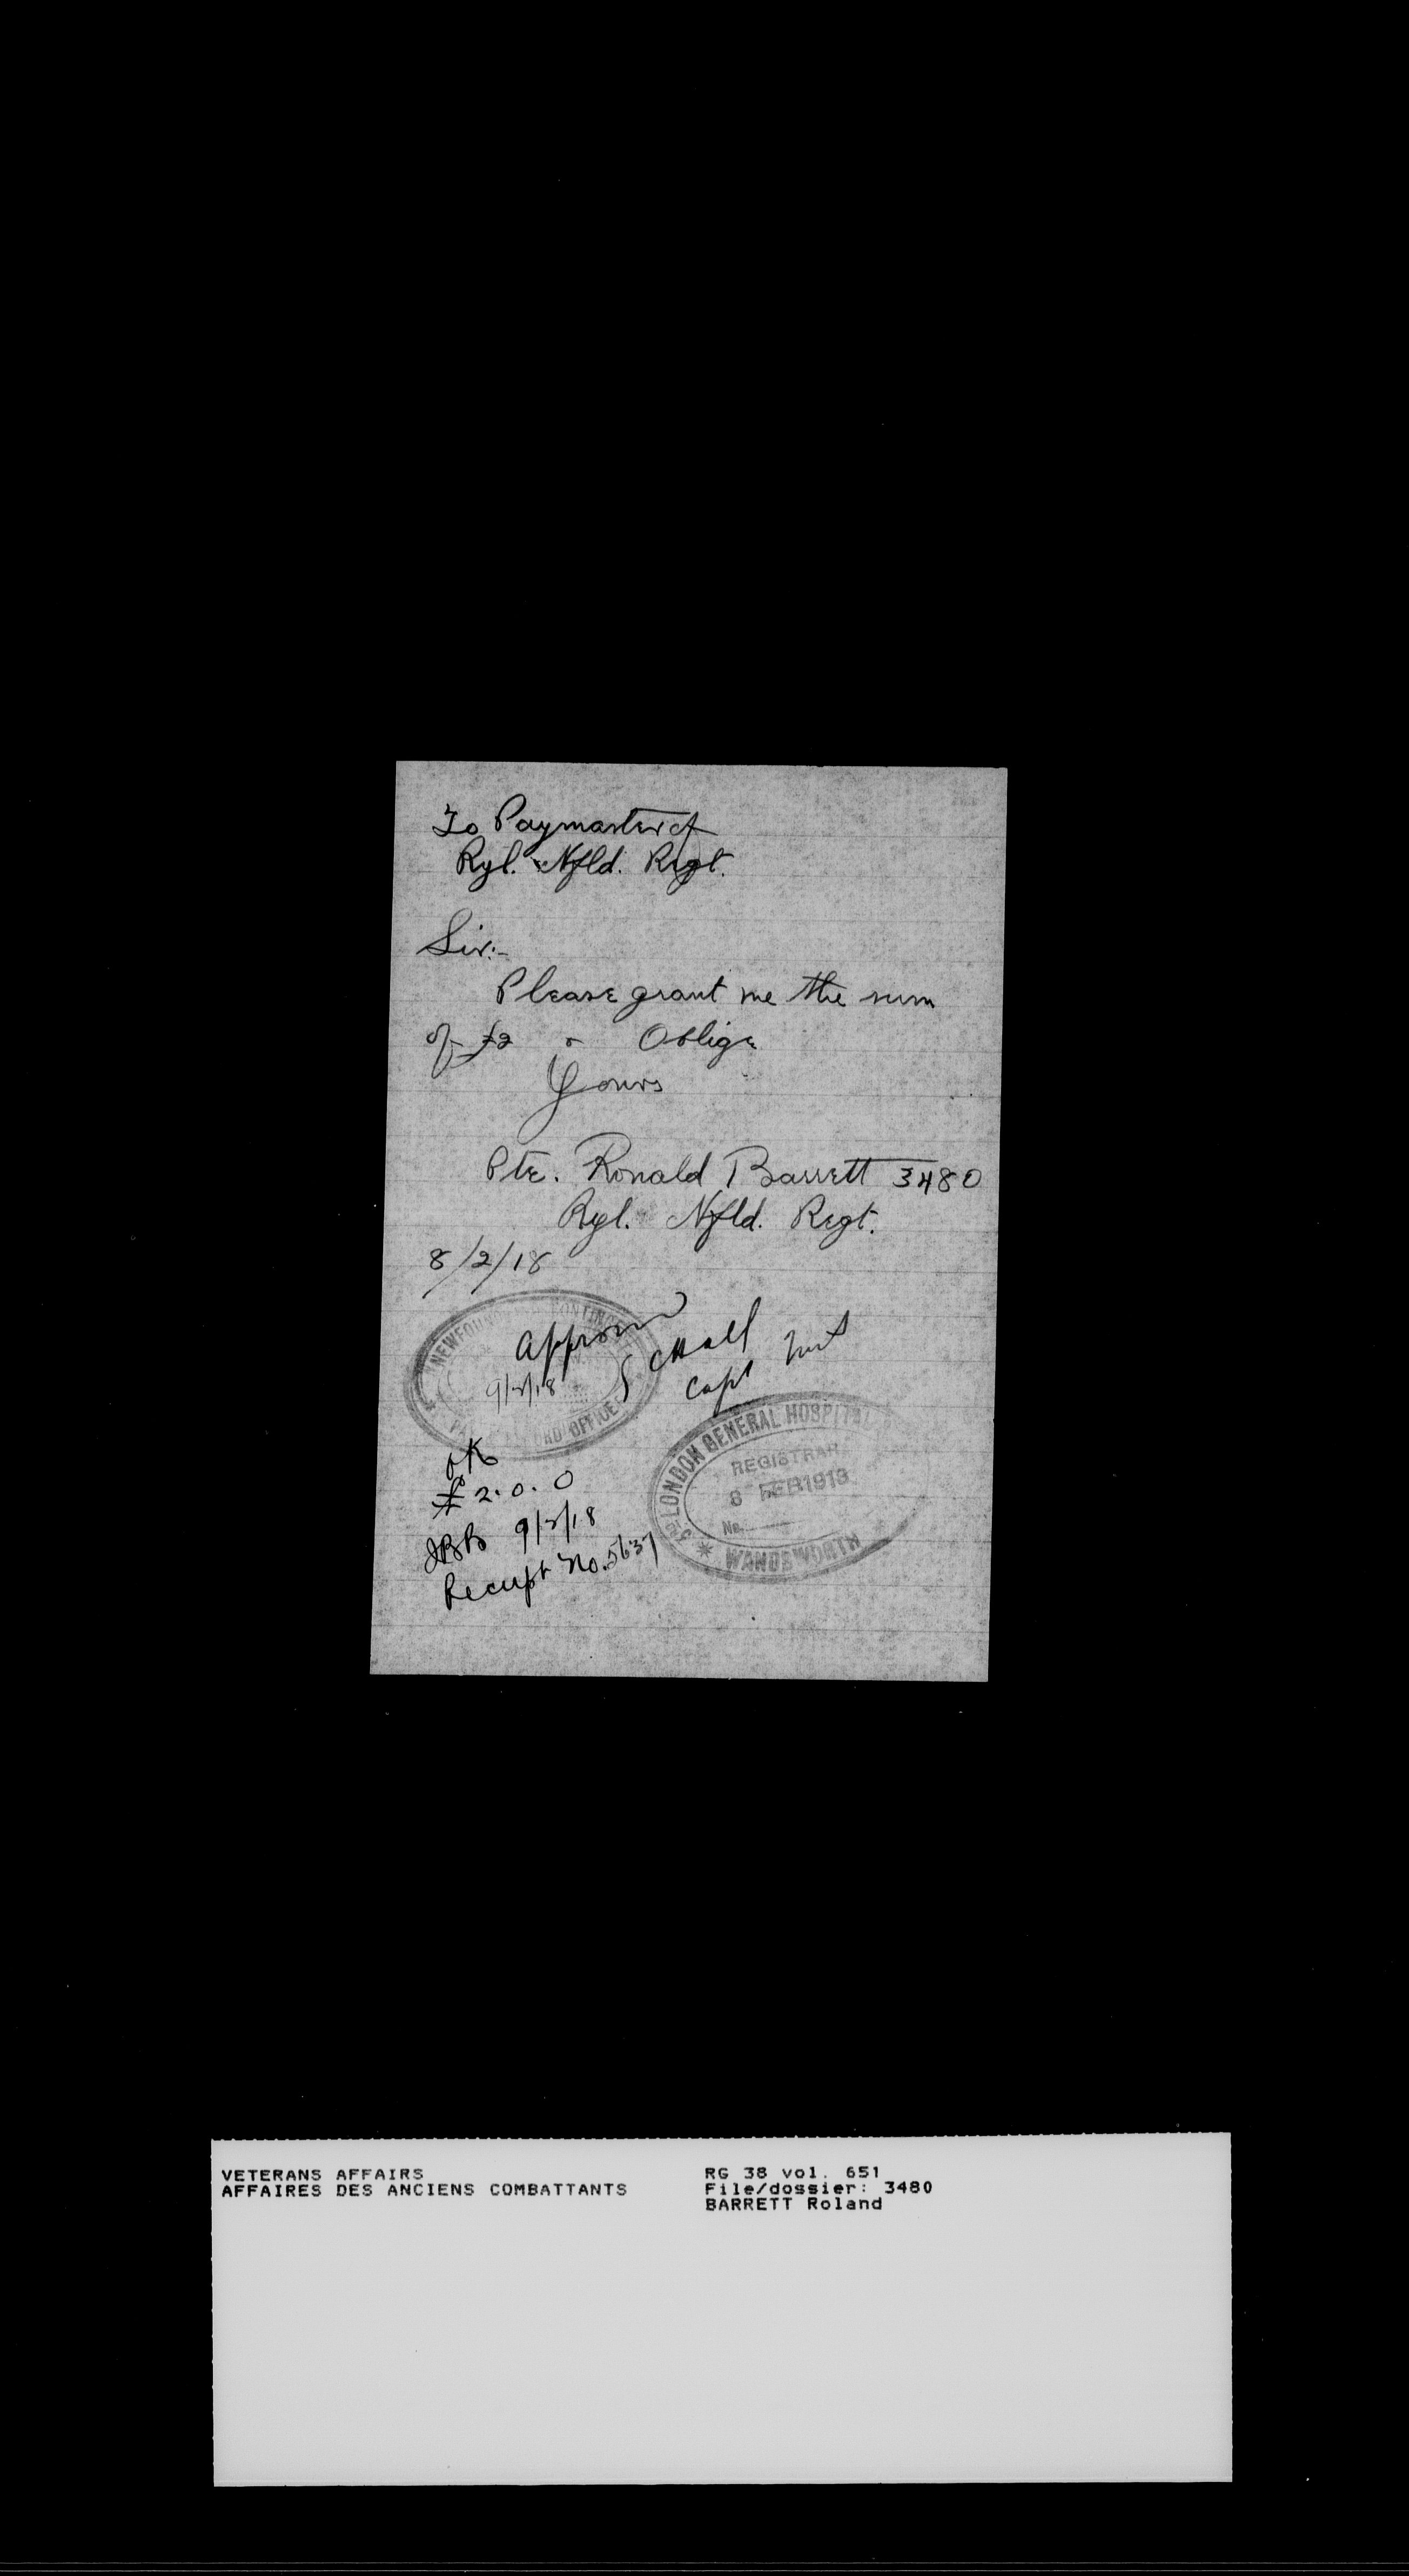 To Paymaster of
Ryl. Nfld. Regt.
Sir:-
Please grant me the sum
of £2 & Oblige
Yours
Pte. Ronald Barrett 3480
Ryl. Nfld. Regt.
8/2/18
NEWFOUN CONTINGENT
Approved
9/2/18
RD OFFICE
Capt
OK
£2.0.0
9/2/18
Receipt No. 5637
3RD LONDON GENERAL HOSPITAL
REGISTRAR
8 FEB 1918
No.
WANDSWORTH
VETERANS AFFAIRS
AFFAIRES DES ANCIENS COMBATTANTS
RG 38 vol. 651
File/dossier: 3480
BARRETT Roland